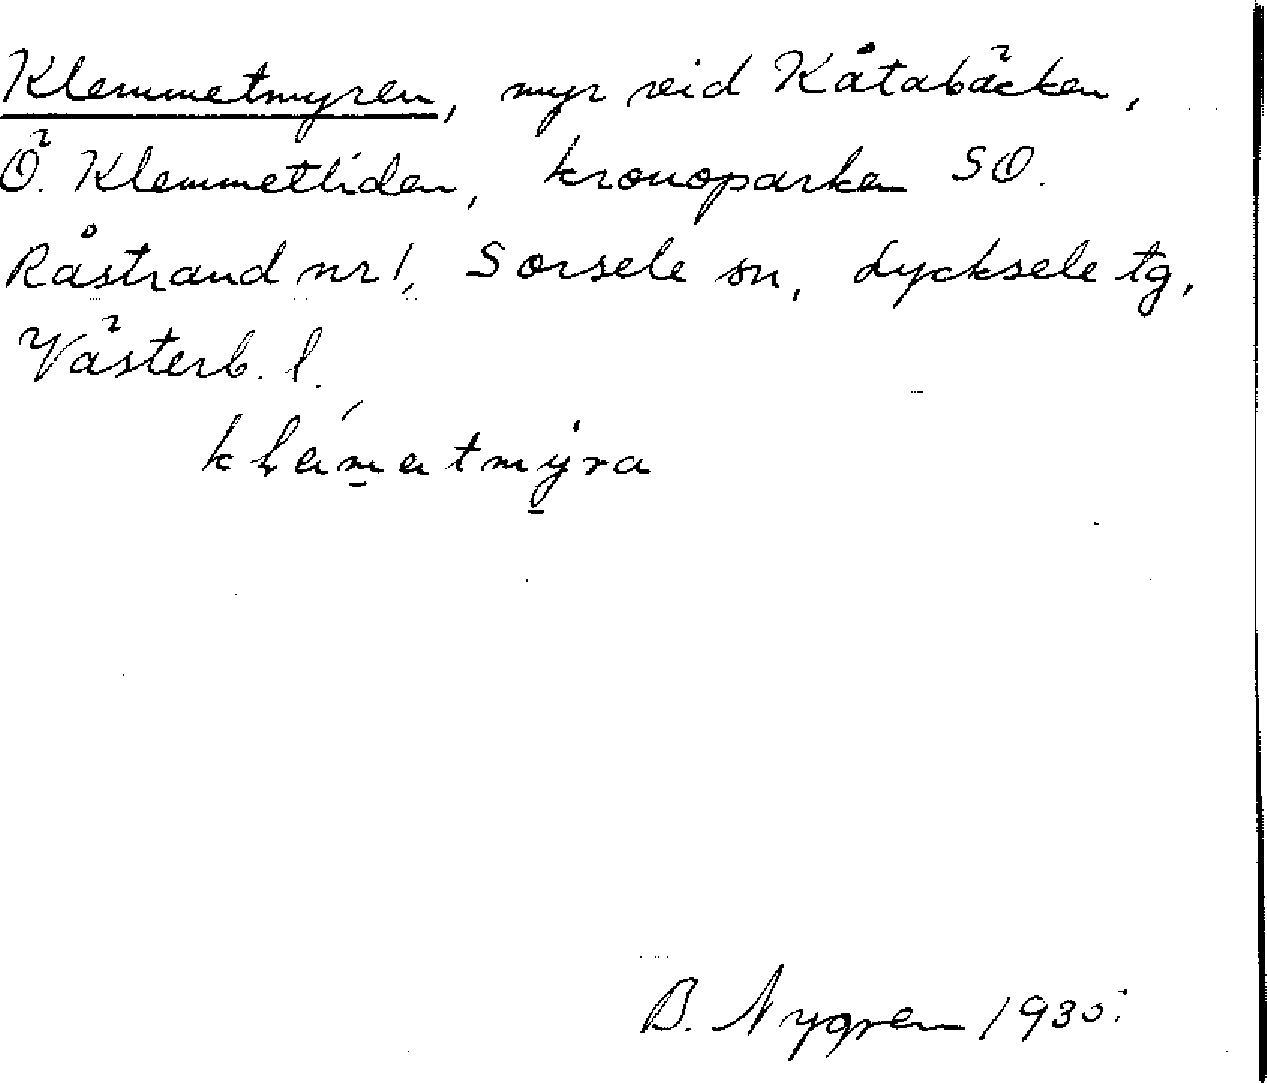 Klemmetmyren, myr vid Kåtabäcken,
Ö. Klemmetliden, kronoparken SO.
Råstrand nr 1, Sorsele sn, Lycksele tg,
Västerb. l.
klemetmyra
B. Nygren 1930.